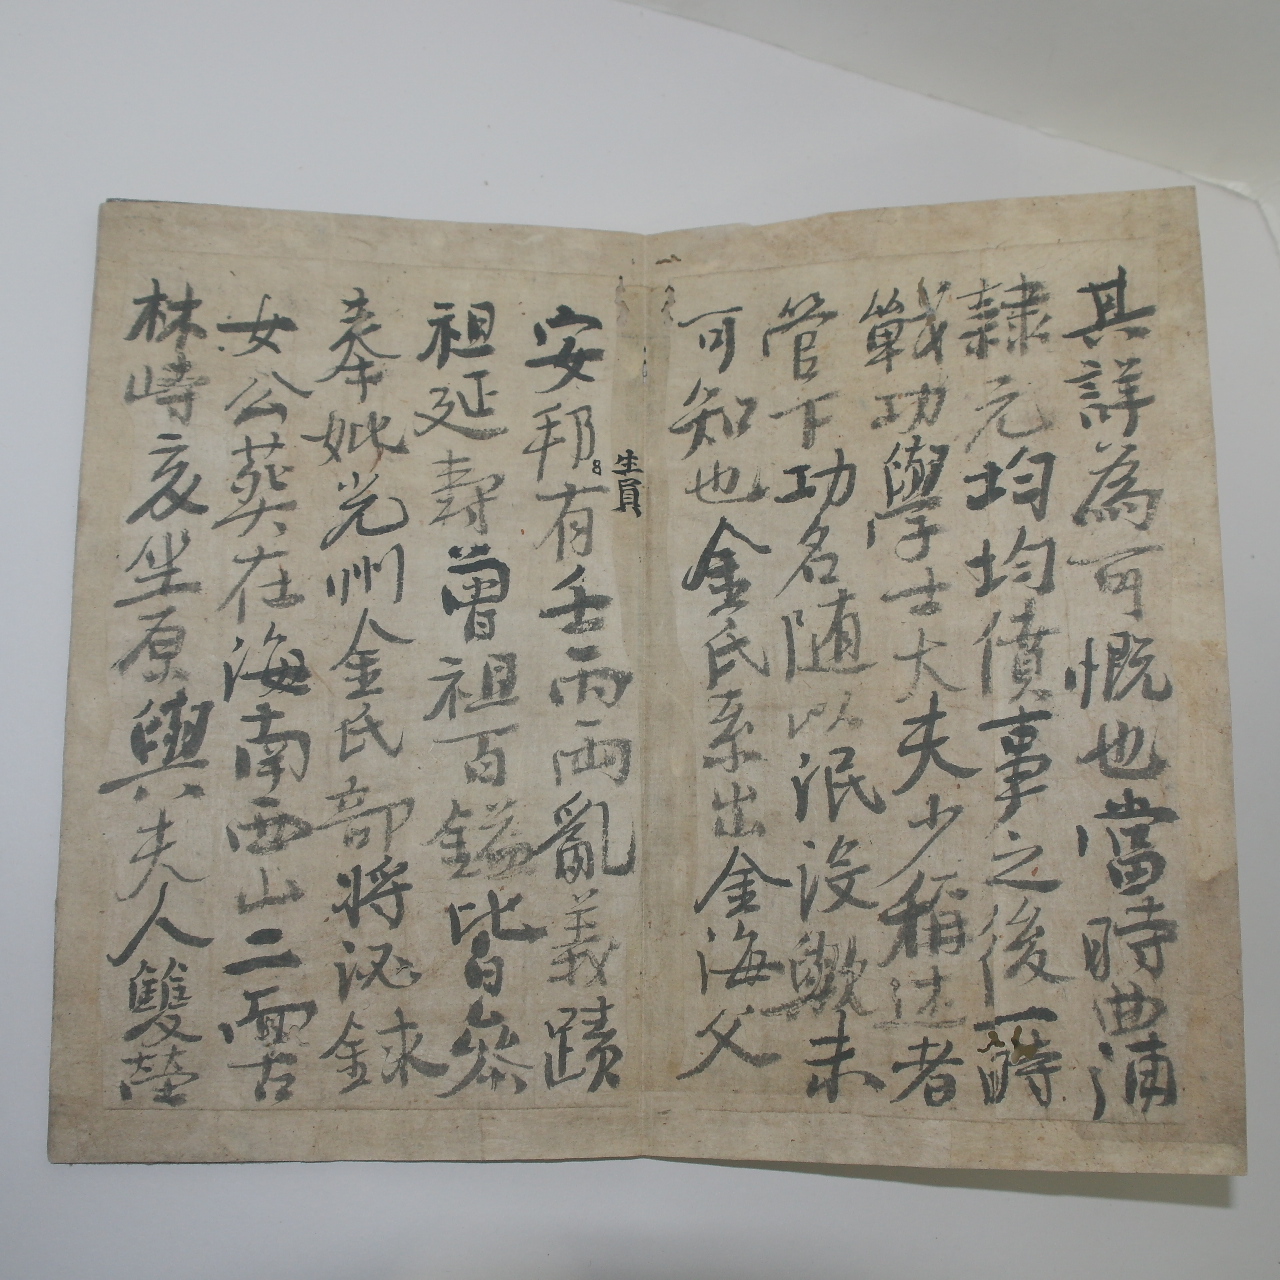 其詳為可慨也當時曲浦
隷元均均僨事之後一時
戰功與學士大夫少稱述者
管下功名随以泯沒歟未
可知也金氏系出金海父
生員
安邦有壬丙兩亂義蹟
祖延壽曾祖百鎰皆參
奉妣光州金氏部將泌錄
女公葬在海南西山二面古
林峙亥坐原與夫人雙塋